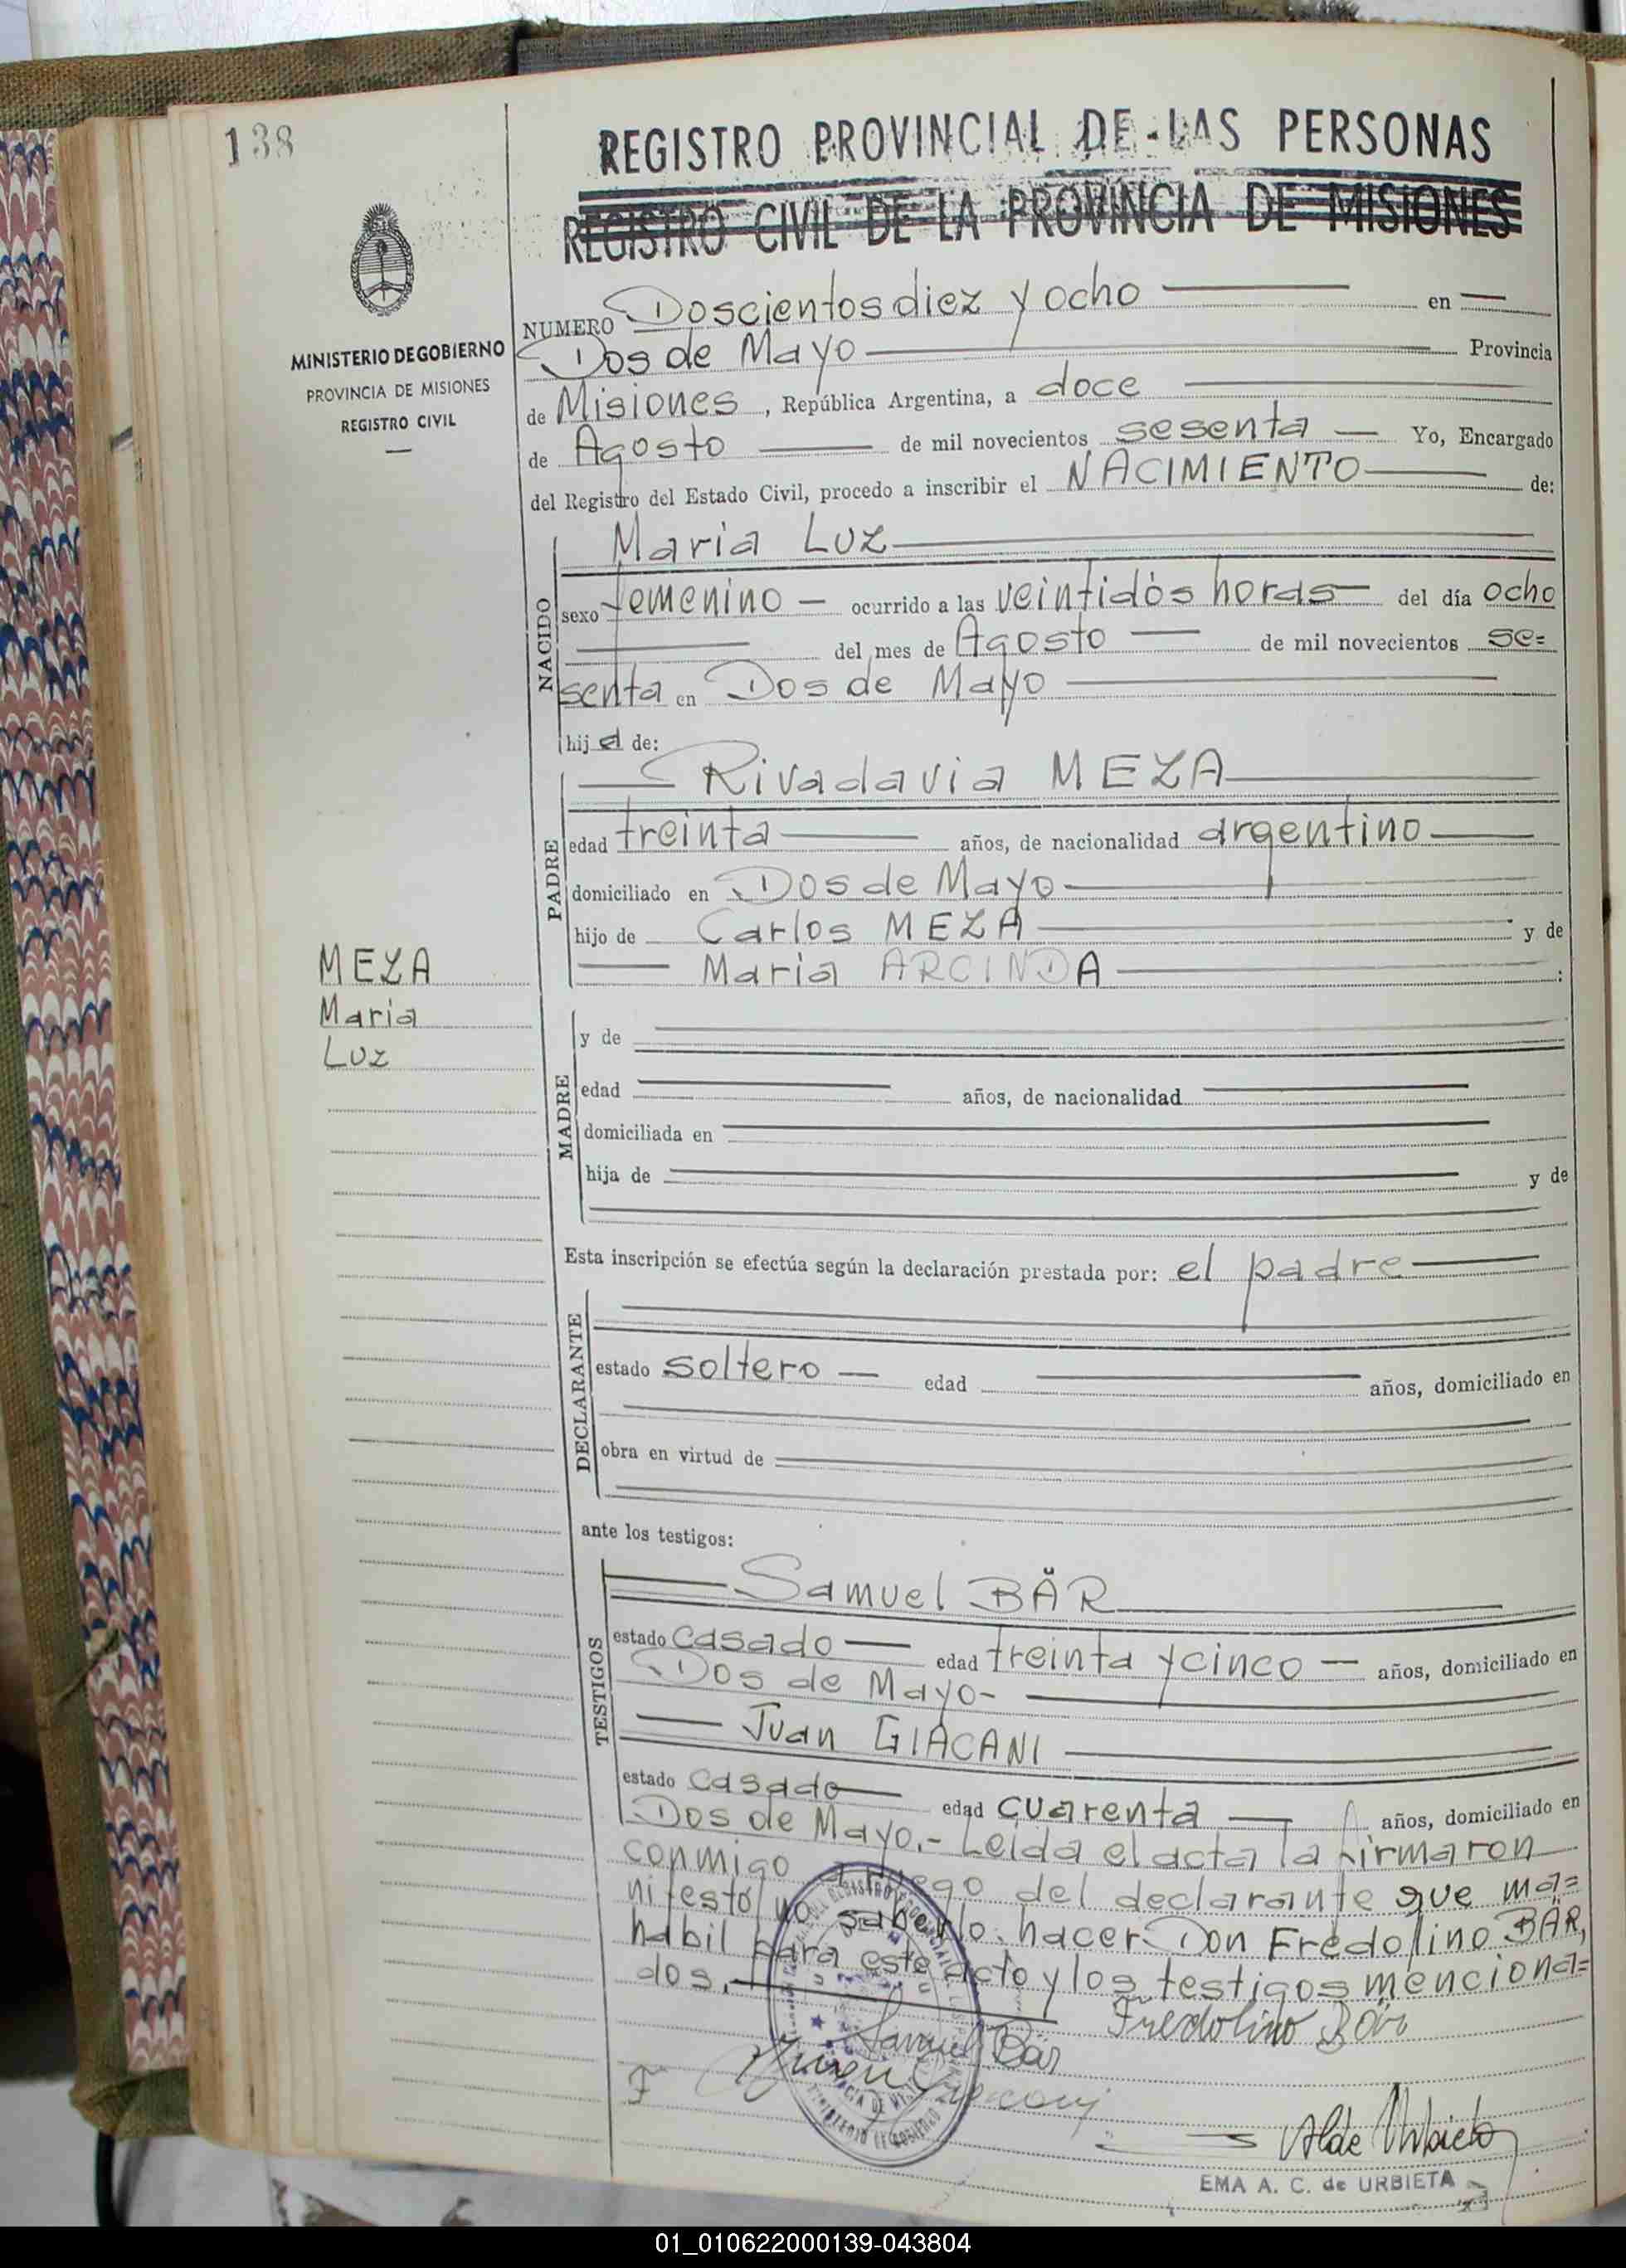 138
REGISTRO PROVINCIAL DE LAS PERSONAS
REGISTRO CIVIL DE LA PROVINCIA DE MISIONES
MINISTERIO DE GOBIERNO
PROVINCIA DE MISIONES
REGISTRO CIVIL
NUMERO Doscientos diez y ocho en
Dos de Mayo Provincia
de Misiones, República Argentina, a doce
de Agosto de mil novecientos sesenta Yo, Encargado
del Registro del Estado Civil, procedo a inscribir el NACIMIENTO de:
NACIDO
Maria Luz
sexo femenino ocurrido a las veintidós horas del día ocho
del mes de Agosto de mil novecientos se=
senta en Dos de Mayo
hija de:
PADRE
Rivadavia MEZA
edad treinta años, de nacionalidad argentino
domiciliado en Dos de Mayo
hijo de Carlos MEZA y de
Maria ARCINDA :
MEZA
Maria
Luz
MADRE
y de
edad años, de nacionalidad
domiciliada en
hija de y de
Esta inscripción se efectúa según la declaración prestada por: el padre
DECLARANTE
estado soltero edad años, domiciliado en
obra en virtud de
ante los testigos:
TESTIGOS
Samuel BÄR
estado casado edad treinta y cinco años, domiciliado en
Dos de Mayo-
Juan GIACANI
estado casado edad cuarenta años, domiciliado en
Dos de Mayo.- Leida el acta la firmaron
conmigo a ruego del declarante que ma=
nifestó no saberlo hacer Don Fredolino BÄR,
habil para este acto y los testigos menciona=
dos.
Fredolino Bär
Samuel Bär
Juan
Alde Urbieta
EMA A. C. de URBIETA
01_010622000139-043804